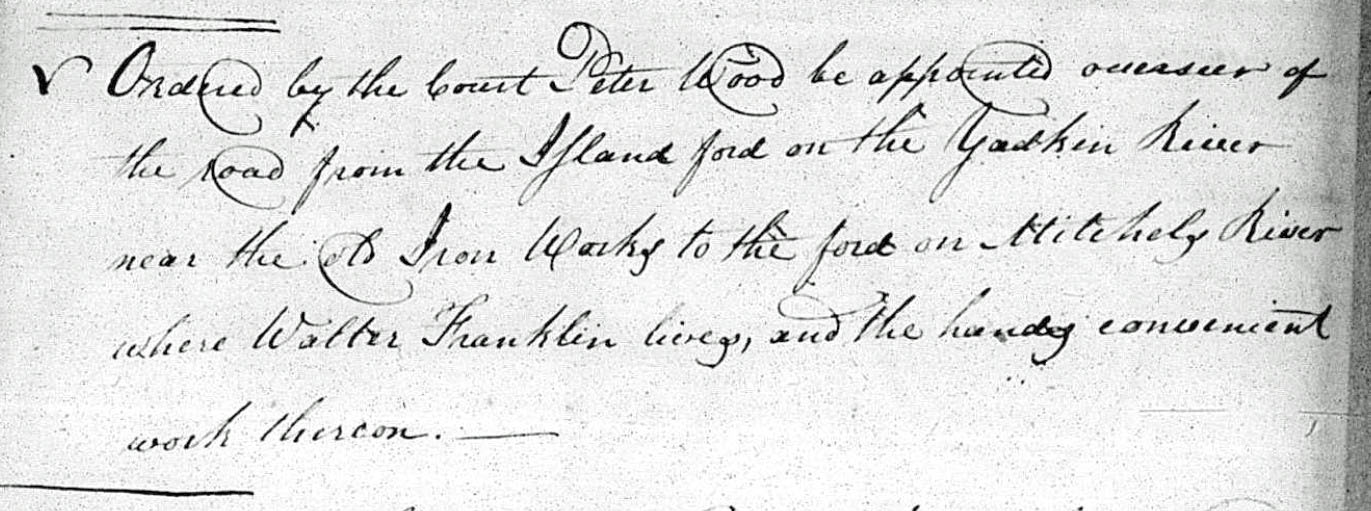 Ordered by the Court Peter Wood be appointed overseer of
the road from the Island ford on the Yadkin River
near the old Iron Works to the ford on Mitchels River
where Walter Franklin lives, and the hands convenient
work thereon. —